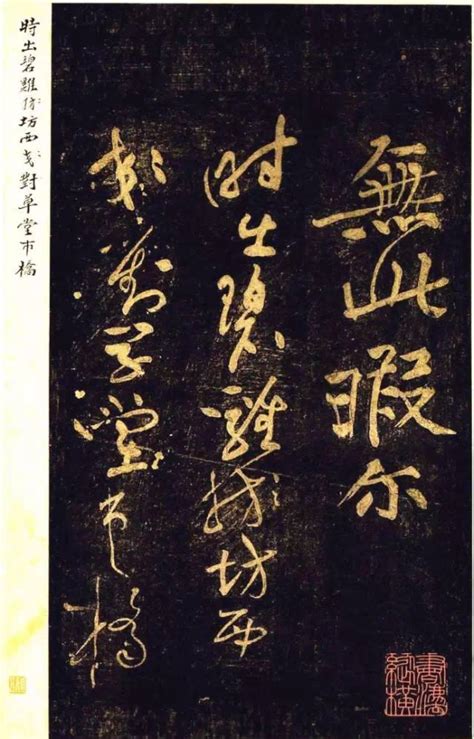 無此暇尔
時出碧雞坊西
郊對草堂市橋
書海縱橫
時出碧雞坊西對草堂市橋